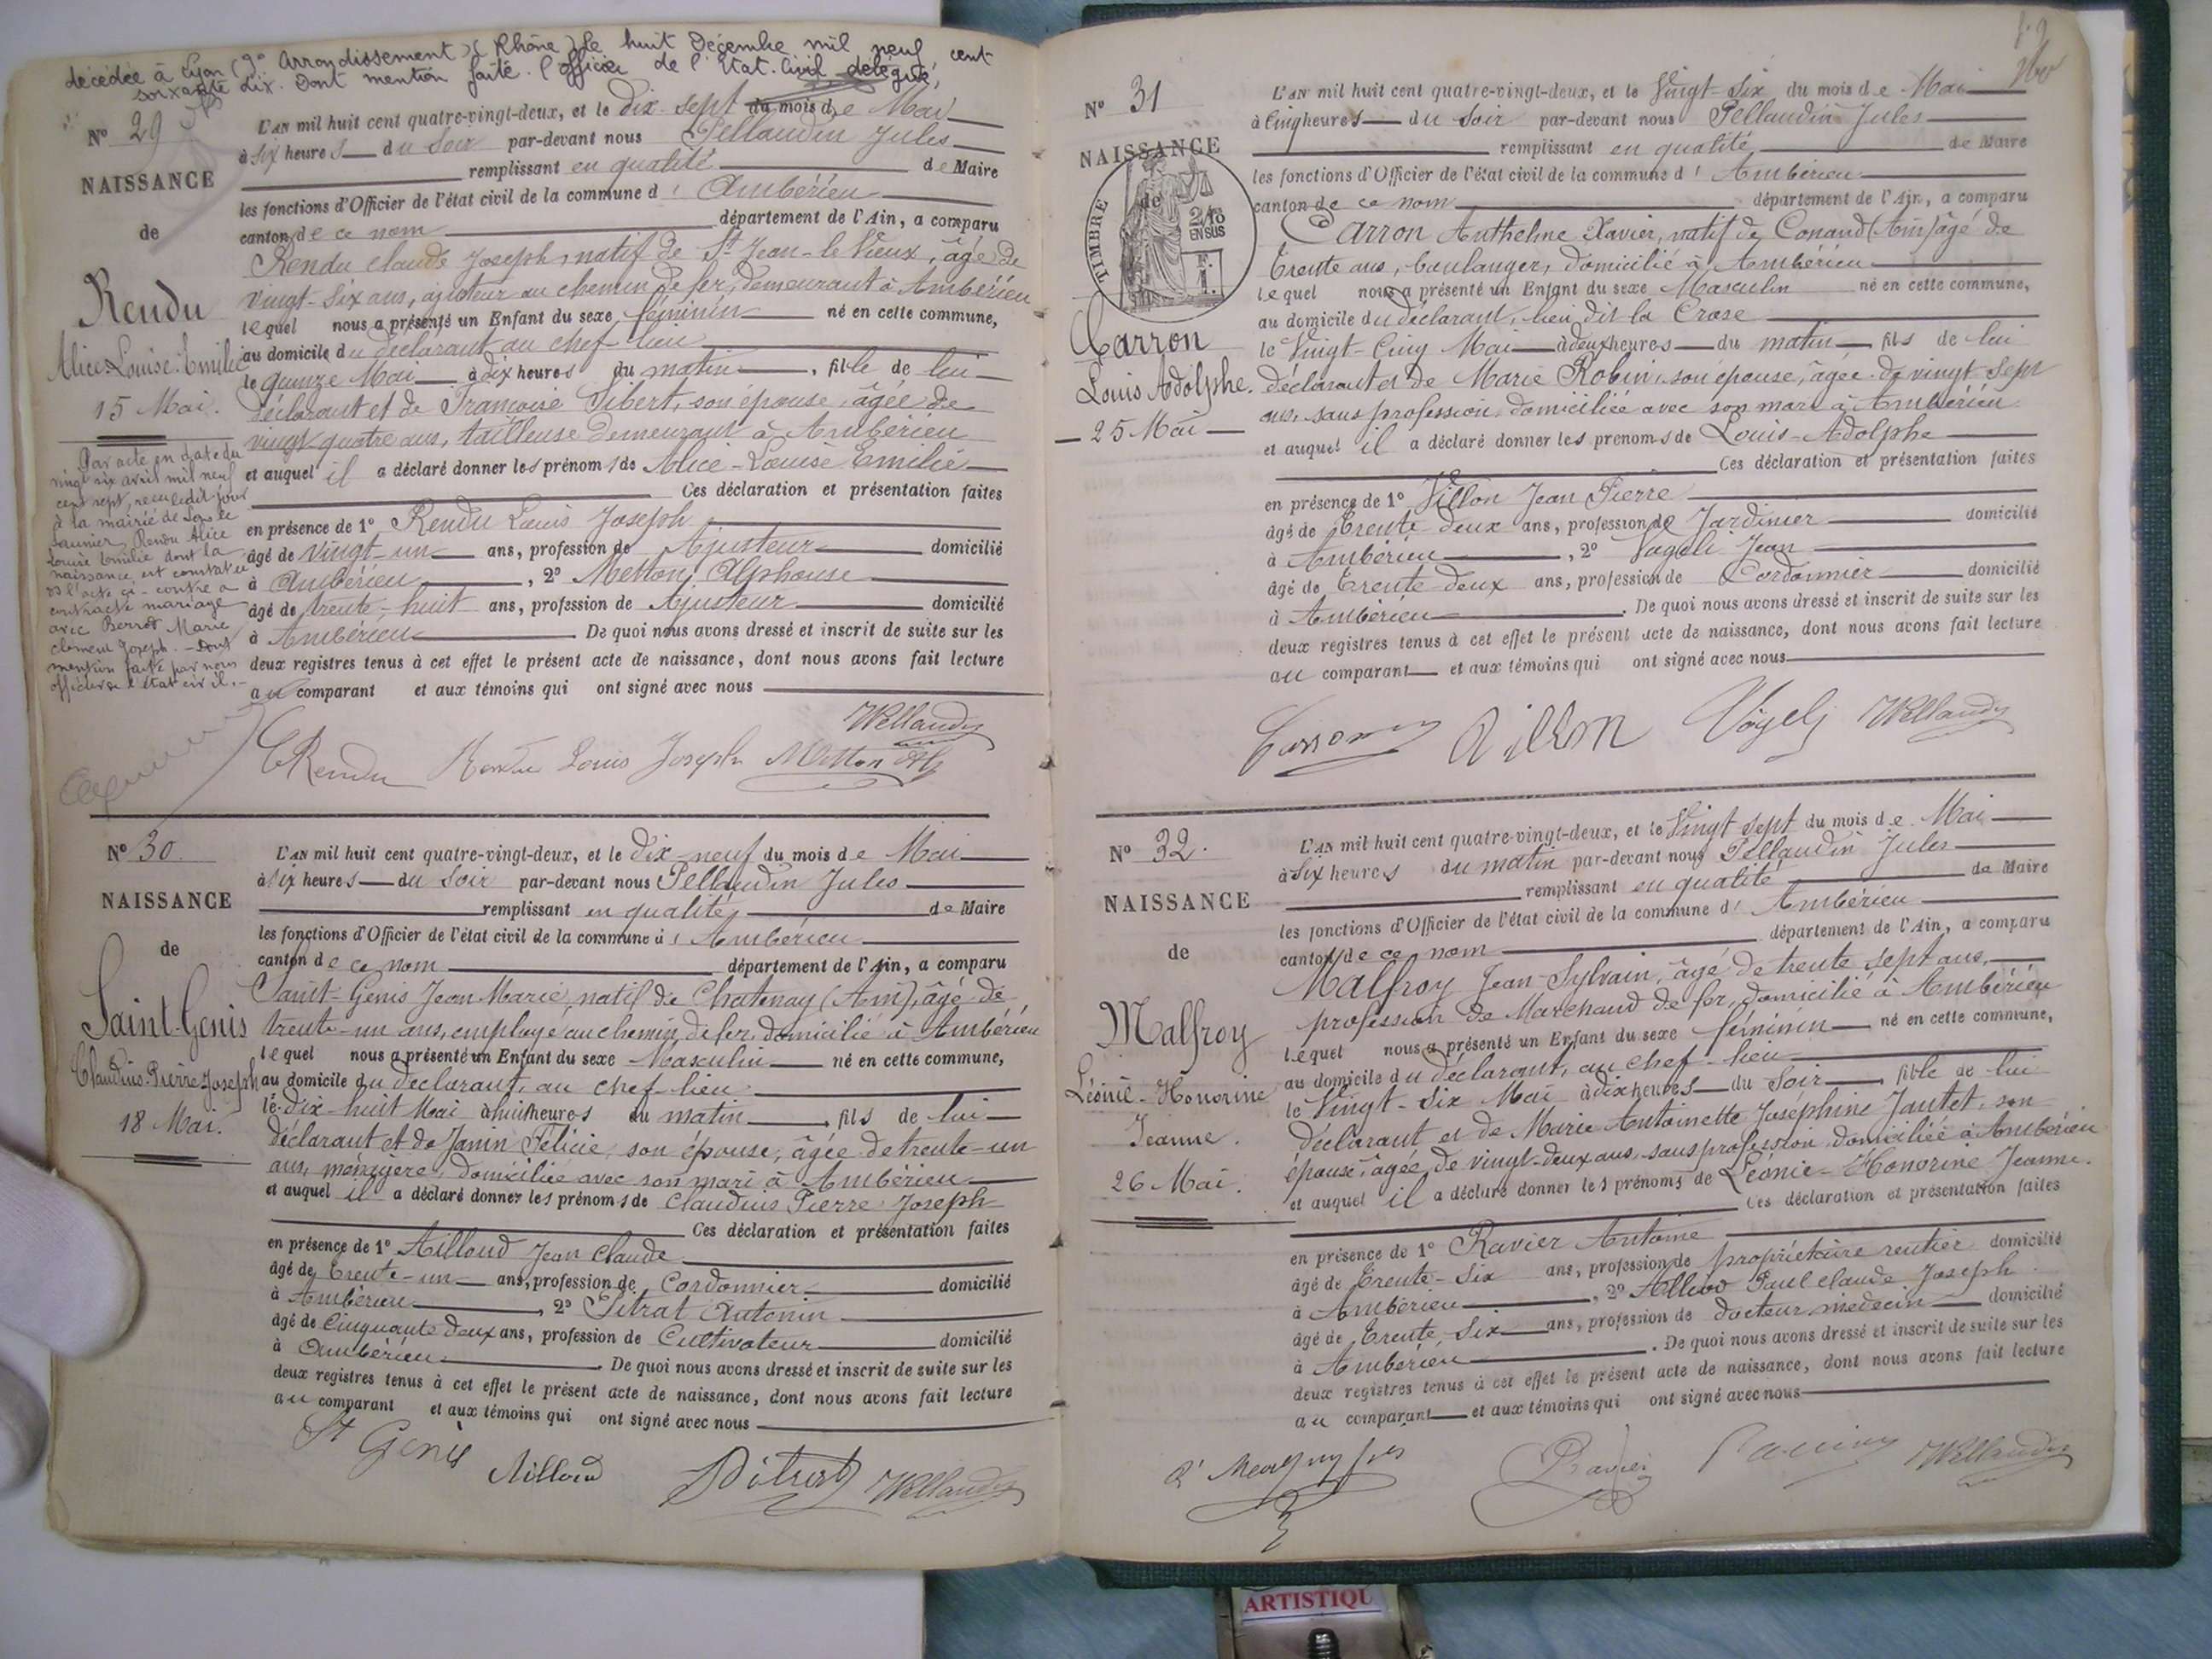 décédée à Lyon (3e Arrondissement) (Rhône) le huit Décembre mil neuf cent
soixante dix. Dont mention faite. l'officier de l'Etat-Civil délégué,
N° 29
NAISSANCE
de
Rendu
Alice Louise Emilie
15 Mai.
Par acte en date du
vingt six avril mil neuf
cent sept, reçu ledit jour
à la mairie de Lons le
Saunier, Rendu Alice
Louise Emilie dont la
naissance est constatée
en l'acte ci-contre a
contracté mariage
avec Berrod Marie
Clément Joseph. - Dont
mention faite par nous
officier de l'état civil. -
L'AN mil huit cent quatre-vingt-deux, et le dix-sept du mois de Mai
à six heures du Soir par-devant nous Pellaudin Jules
remplissant en qualité de Maire
les fonctions d'Officier de l'état civil de la commune d' Ambérieu
canton de ce nom département de l'Ain, a comparu
Rendu Claude Joseph, natif de St Jean-le-Vieux, âgé de
vingt-six ans, ajusteur au chemin de fer, demeurant à Ambérieu
lequel nous a présenté un Enfant du sexe féminin né en cette commune,
au domicile du déclarant au chef-lieu
le quinze Mai à dix heures du matin, fille de lui
déclarant et de Françoise Sibert, son épouse, âgée de
vingt-quatre ans, tailleuse demeurant à Ambérieu
et auquel il a déclaré donner les prénoms de Alice-Louise Emilie
Ces déclaration et présentation faites
en présence de 1° Rendu Louis Joseph
âgé de vingt-un ans, profession de Ajusteur domicilié
à Ambérieu, 2° Metton Alphonse
âgé de trente-huit ans, profession de Ajusteur domicilié
à Ambérieu De quoi nous avons dressé et inscrit de suite sur les
deux registres tenus à cet effet le présent acte de naissance, dont nous avons fait lecture
au comparant et aux témoins qui ont signé avec nous
Rendu Rendu Louis Joseph Metton
N° 30.
NAISSANCE
de
Saint-Genis
Claudius-Pierre-Joseph
18 Mai.
L'AN mil huit cent quatre-vingt-deux, et le dix-neuf du mois de Mai
à six heures du Soir par-devant nous Pellaudin Jules
remplissant en qualité, de Maire
les fonctions d'Officier de l'état civil de la commune d' Ambérieu
canton de ce nom département de l'Ain, a comparu
Saint-Genis Jean Marie, natif de Chatenay (Ain), âgé de
trente-un ans, employé au chemin de fer, domicilié à Ambérieu
lequel nous a présenté un Enfant du sexe Masculin né en cette commune,
au domicile du déclarant, au chef-lieu
le dix-huit Mai à huit heures du matin, fils de lui
déclarant et de Janin Félicie, son épouse, âgée de trente-un
ans, ménagère, domiciliée avec son mari à Ambérieu
et auquel il a déclaré donner les prénoms de Claudius Pierre Joseph
Ces déclaration et présentation faites
en présence de 1° Ailloud Jean Claude
âgé de Trente-un ans, profession de Cordonnier domicilié
à Ambérieu, 2° Pitrat Antonin
âgé de Cinquante deux ans, profession de Cultivateur domicilié
à Ambérieu. De quoi nous avons dressé et inscrit de suite sur les
deux registres tenus à cet effet le présent acte de naissance, dont nous avons fait lecture
au comparant et aux témoins qui ont signé avec nous
St Genis Ailloud Pitrat
N° 31
NAISSANCE
de
TIMBRE
2/10
EN SUS
Carron
Louis Adolphe.
25 Mai
L'AN mil huit cent quatre-vingt-deux, et le Vingt-Six du mois de Mai
à Cinq heures du Soir par-devant nous Pellaudin Jules
remplissant en qualité, de Maire
les fonctions d'Officier de l'état civil de la commune d' Ambérieu
canton de ce nom département de l'Ain, a comparu
Carron Anthelme Xavier, natif de Conand (Ain) âgé de
Trente ans, boulanger, domicilié à Ambérieu
lequel nous a présenté un Enfant du sexe Masculin né en cette commune,
au domicile du déclarant, lieu dit la Crase
le Vingt-Cinq Mai à deux heures du matin, fils de lui
déclarant et de Marie Robin, son épouse, âgée de vingt-sept
ans, sans profession, domiciliée avec son mari à Ambérieu
et auquel il a déclaré donner les prénoms de Louis-Adolphe
Ces déclaration et présentation faites
en présence de 1° Villon Jean Pierre
âgé de Trente deux ans, profession de Jardinier domicilié
à Ambérieu, 2° Vogeli Jean
âgé de Trente deux ans, profession de Cordonnier domicilié
à Ambérieu. De quoi nous avons dressé et inscrit de suite sur les
deux registres tenus à cet effet le présent acte de naissance, dont nous avons fait lecture
au comparant et aux témoins qui ont signé avec nous
Carron Villon Vögelj
N° 32.
NAISSANCE
de
Malfroy
Léonie-Honorine
Jeanne.
26 Mai.
L'AN mil huit cent quatre-vingt-deux, et le Vingt sept du mois de Mai
à Six heures du matin par-devant nous Pellaudin Jules
remplissant en qualité de Maire
les fonctions d'Officier de l'état civil de la commune d' Ambérieu
canton de ce nom département de l'Ain, a comparu
Malfroy Jean-Sylvain, âgé de trente sept ans,
profession de Marchand de fer, domicilié à Ambérieu
lequel nous a présenté un Enfant du sexe féminin né en cette commune,
au domicile du déclarant, au chef-lieu
le Vingt-Six Mai à dix heures du Soir, fille de lui
déclarant et de Marie Antoinette Joséphine Jantet, son
épouse, âgée de vingt-deux ans, sans profession, domiciliée à Ambérieu
et auquel il a déclaré donner les prénoms de Léonie-Honorine Jeanne.
Ces déclaration et présentation faites
en présence de 1° Ravier Antoine
âgé de Trente-Six ans, profession de propriétaire rentier domicilié
à Ambérieu, 2° Paul Claude Joseph
âgé de Trente-Six ans, profession de docteur médecin domicilié
à Ambérieu. De quoi nous avons dressé et inscrit de suite sur les
deux registres tenus à cet effet le présent acte de naissance, dont nous avons fait lecture
au comparant et aux témoins qui ont signé avec nous
Ravier
ARTISTIQU